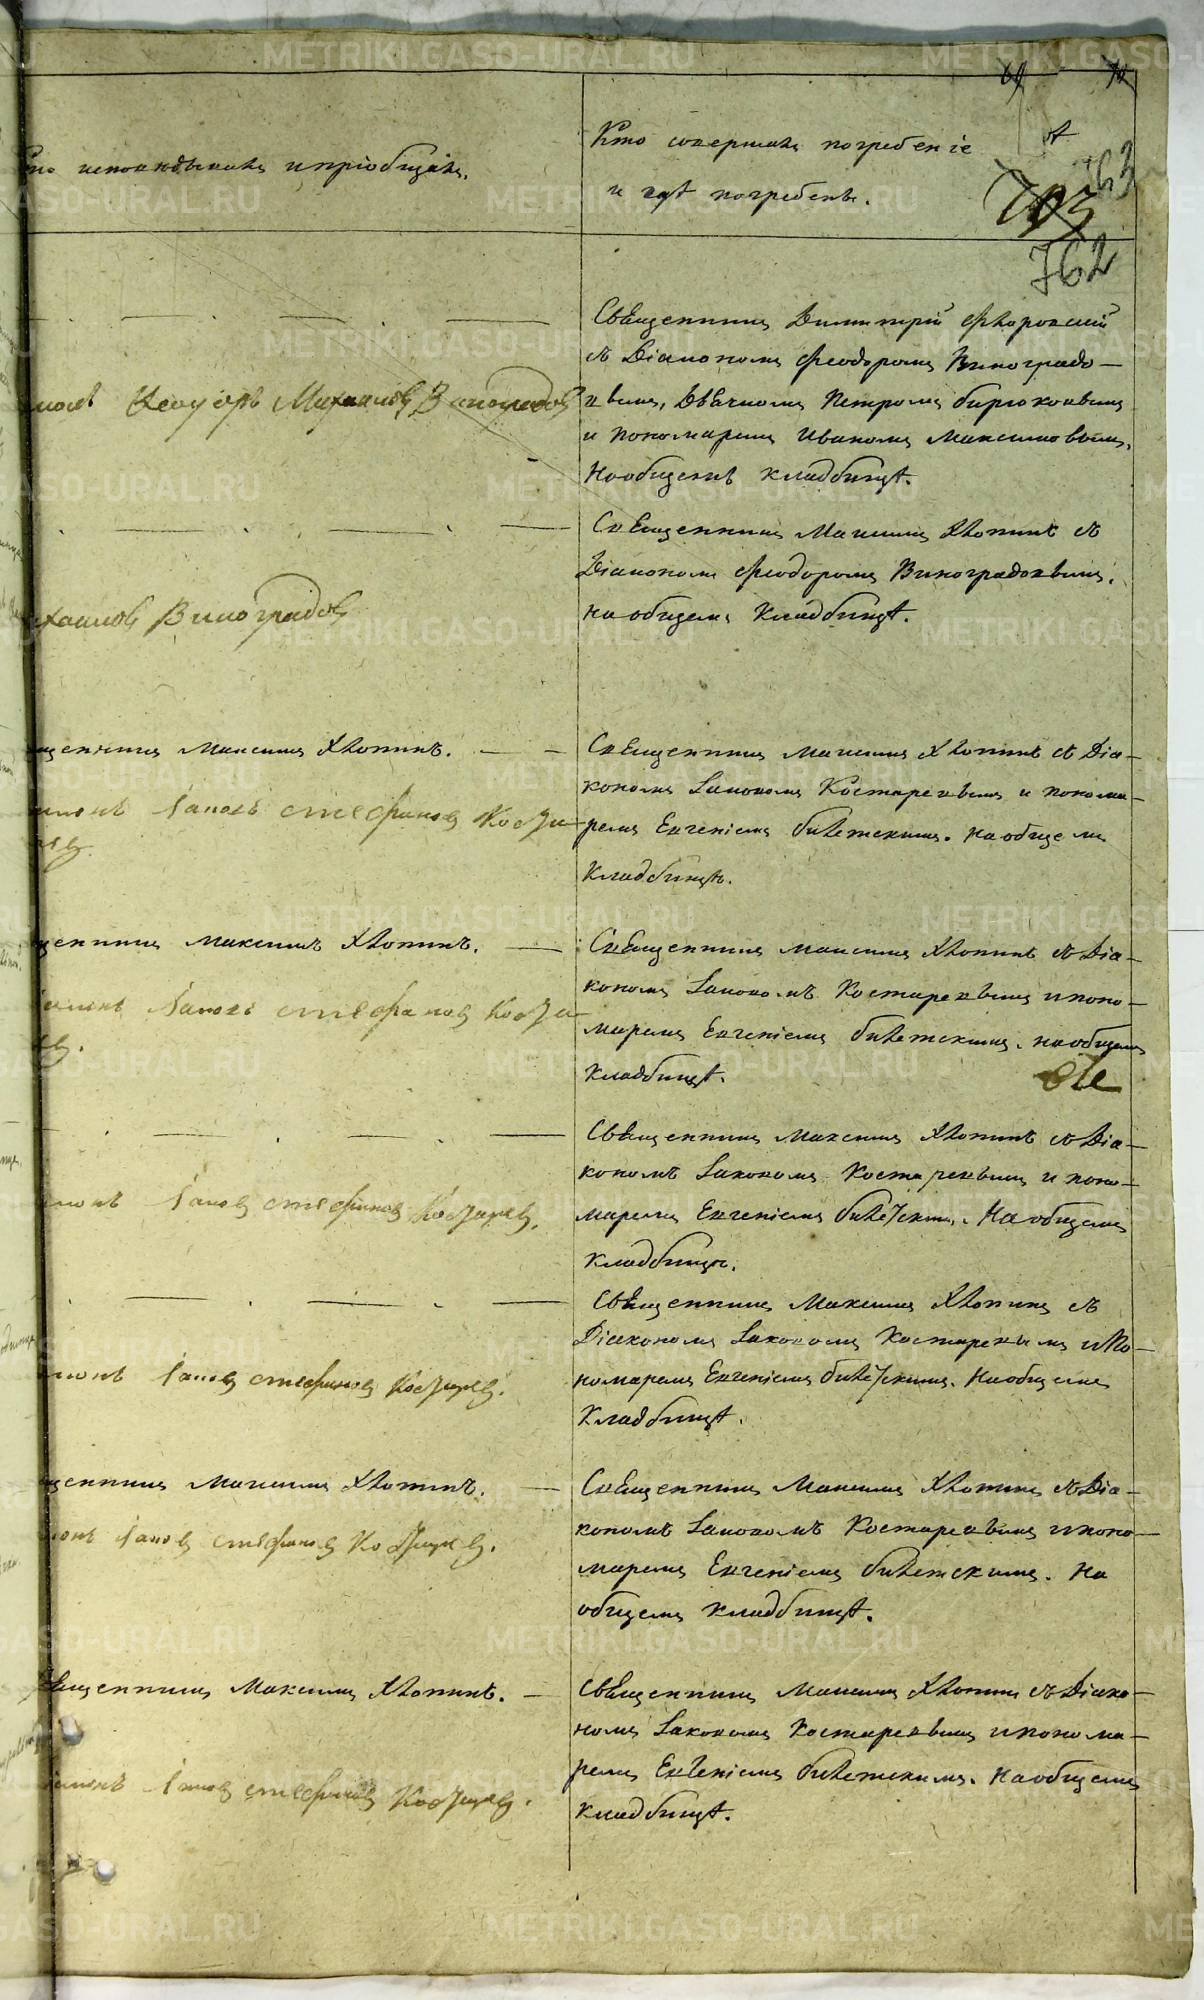 исповѣдывалъ и пріобщалъ.
Кто совершалъ погребеніе
и гдѣ погребенъ.
703
763
762
Священникъ Димитрій Флоровскій
съ Діакономъ Феодоромъ Виноградо-
вымъ, Дьячкомъ Петромъ Бирюковымъ
и пономаремъ Иваномъ Максимовымъ.
На общемъ кладбищѣ.
Феодоръ Михаиловъ Виноградовъ
Священникъ Максимъ Хлопинъ съ
Діакономъ Феодоромъ Виноградовымъ.
на общемъ кладбищѣ.
хаиловъ Виноградовъ
щенникъ Максимъ Хлопинъ.
Іаковъ Стефановъ Костаревъ
Священникъ Максимъ Хлопинъ съ Діа-
кономъ Іаковомъ Костаревымъ и понома-
ремъ Евгеніемъ Билетскимъ. на общемъ
кладбищѣ.
щенникъ Максимъ Хлопинъ.
Іаковъ Стефановъ Костаревъ.
Священникъ Максимъ Хлопинъ съ Діа-
кономъ Іаковомъ Костаревымъ и поно-
маремъ Евгеніемъ Билетскимъ. на общемъ
кладбищѣ.
Іаковъ Стефановъ Костаревъ.
Священникъ Максимъ Хлопинъ съ Діа-
кономъ Іаковомъ Костаревымъ и поно-
маремъ Евгеніемъ Билетскимъ. На общемъ
кладбищѣ.
Іаковъ Стефановъ Костаревъ.
Священникъ Максимъ Хлопинъ съ
Діакономъ Іаковомъ Костаревымъ и по-
номаремъ Евгеніемъ Билетскимъ. На общемъ
кладбищѣ.
щенникъ Максимъ Хлопинъ.
Іаковъ Стефановъ Костаревъ.
Священникъ Максимъ Хлопинъ съ Діа-
кономъ Іаковомъ Костаревымъ и поно-
маремъ Евгеніемъ Билетскимъ. На
общемъ кладбищѣ.
Священникъ Максимъ Хлопинъ.
Іаковъ Стефановъ Костаревъ.
Священникъ Максимъ Хлопинъ съ Діако-
номъ Іаковомъ Костаревымъ и понома-
ремъ Евгеніемъ Билетскимъ. На общемъ
кладбищѣ.
METRIKI.GASO-URAL.RU